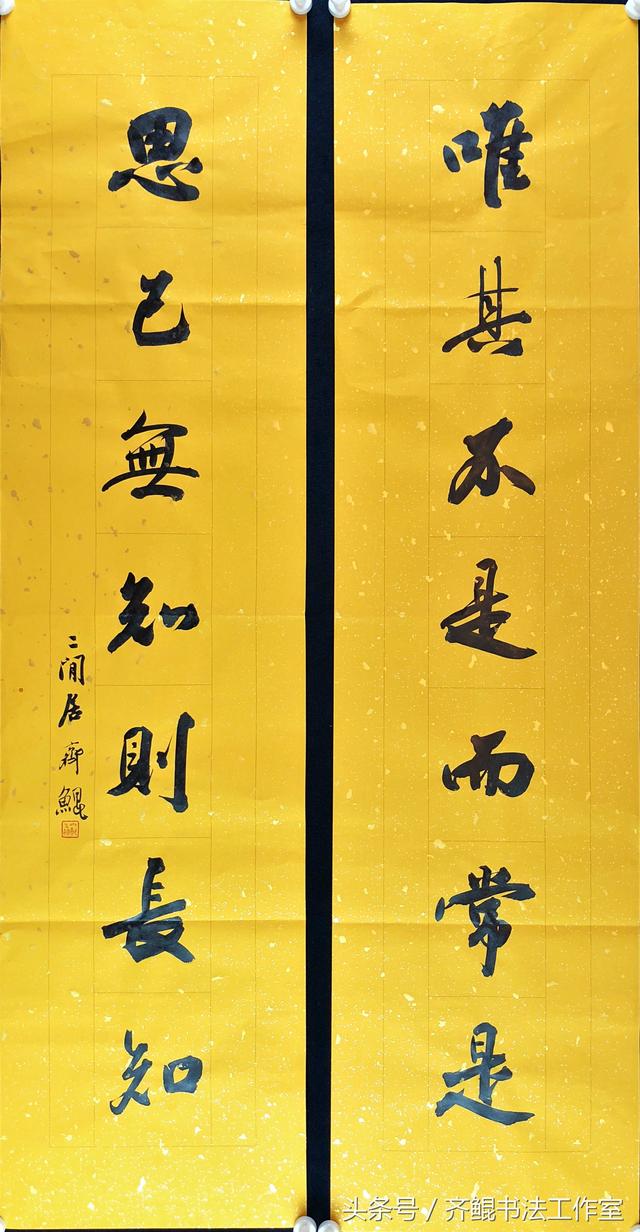 唯其不是而常是
思己無知則長知
二閒居齊鯤
头条号 / 齐鲲书法工作室